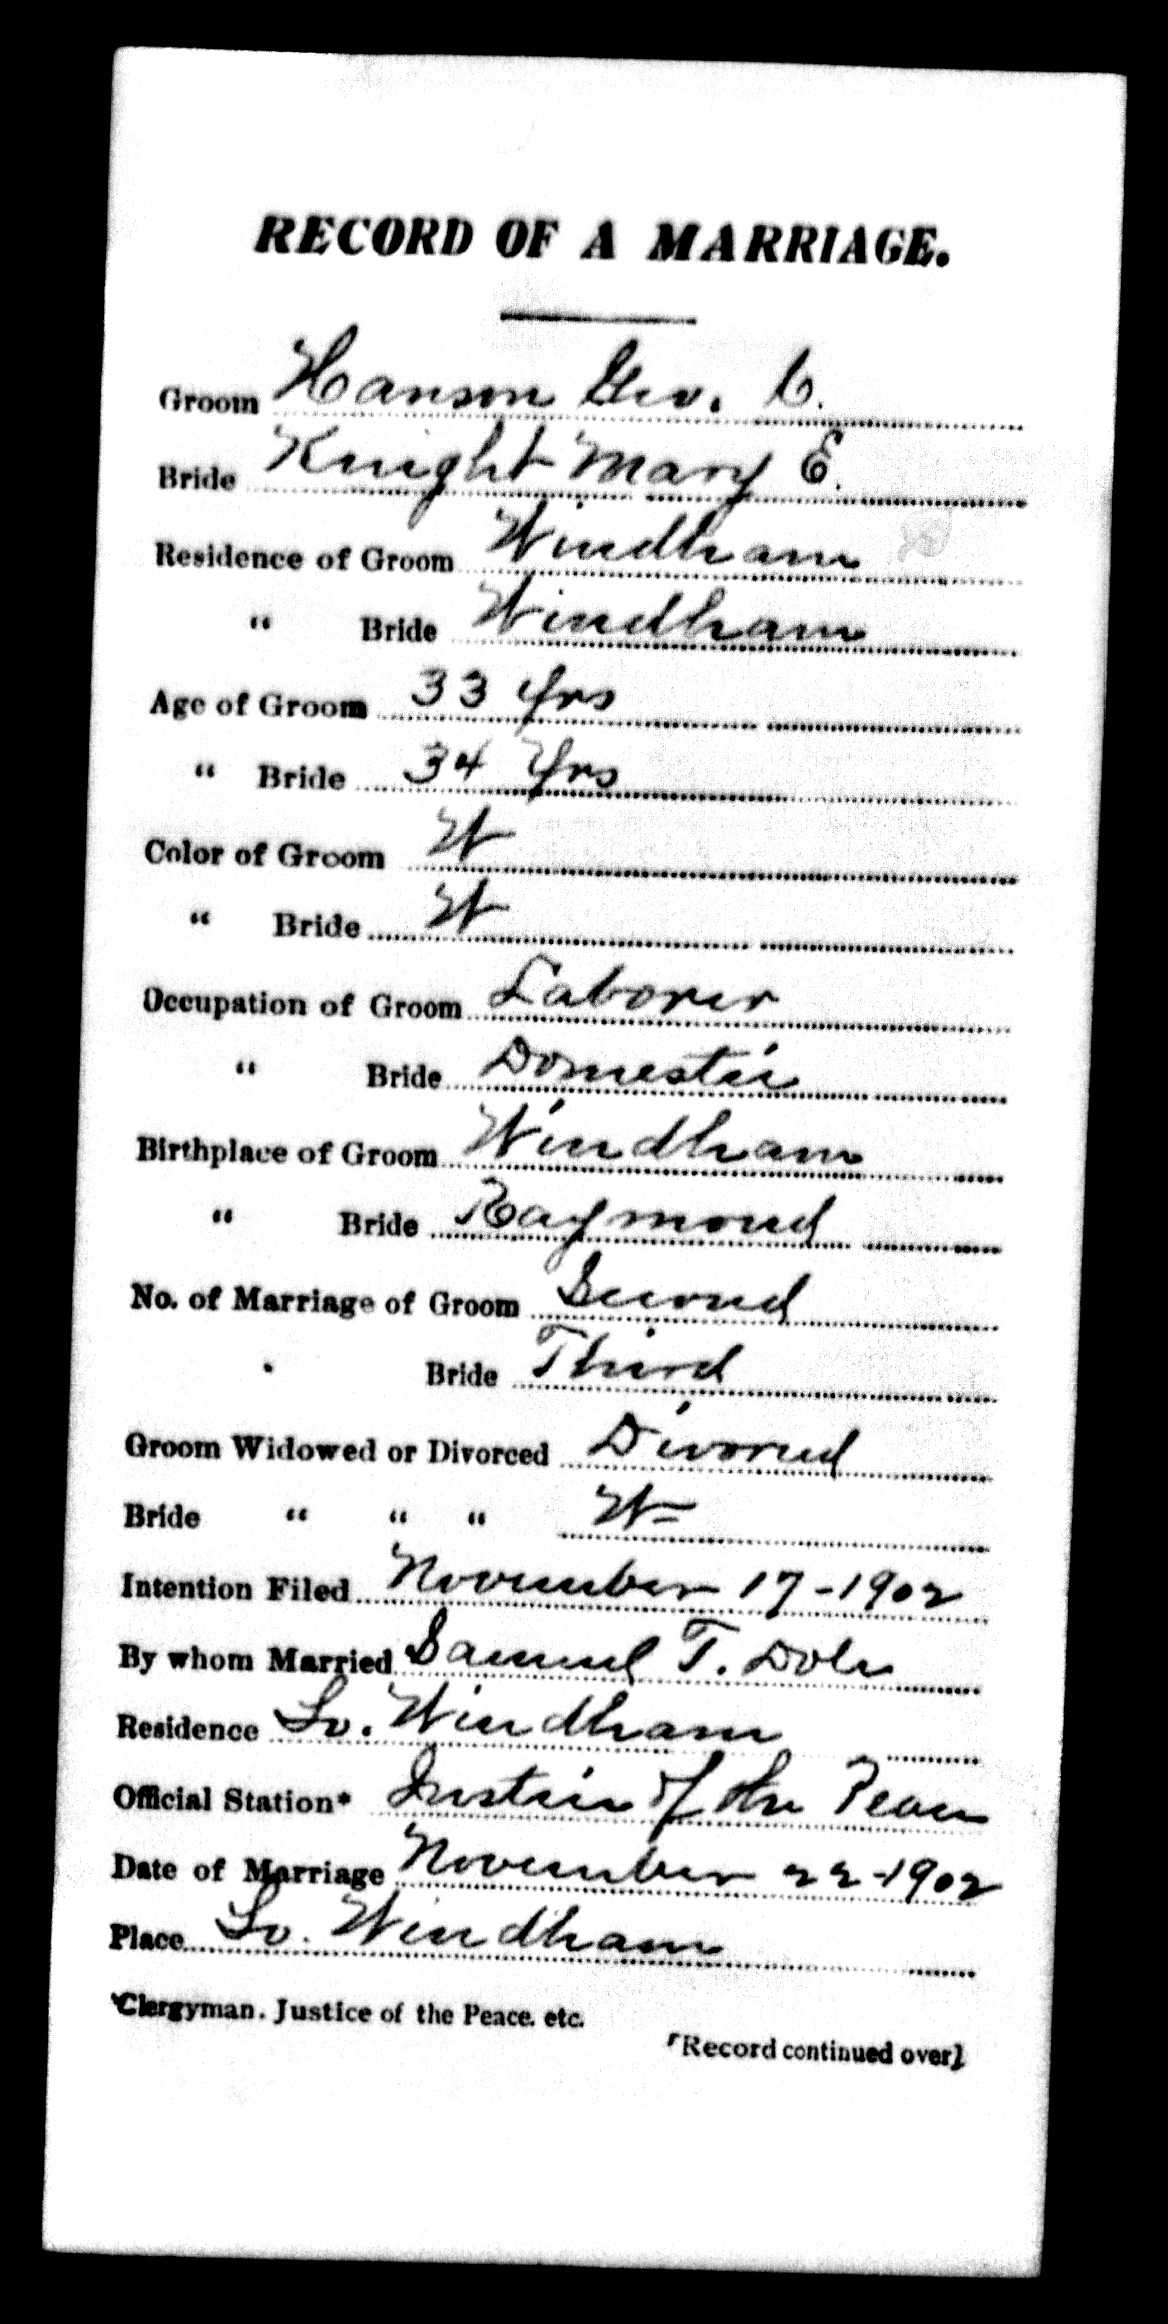 RECORD OF A MARRIAGE.
Groom Hanson Geo. C.
Bride Knight Mary E.
Residence of Groom Windham
" Bride Windham
Age of Groom 33 yrs
" Bride 34 Yrs
Color of Groom W
" Bride W
Occupation of Groom Laborer
" Bride Domestic
Birthplace of Groom Windham
" Bride Raymond
No. of Marriage of Groom Second
Bride Third
Groom Widowed or Divorced Divorced
Bride " " " W
Intention Filed November 17-1902
By whom Married Samuel T. Dole
Residence So. Windham
Official Station* Justice of the Peace
Date of Marriage November 22-1902
Place So. Windham
*Clergyman. Justice of the Peace. etc.
[Record continued over]